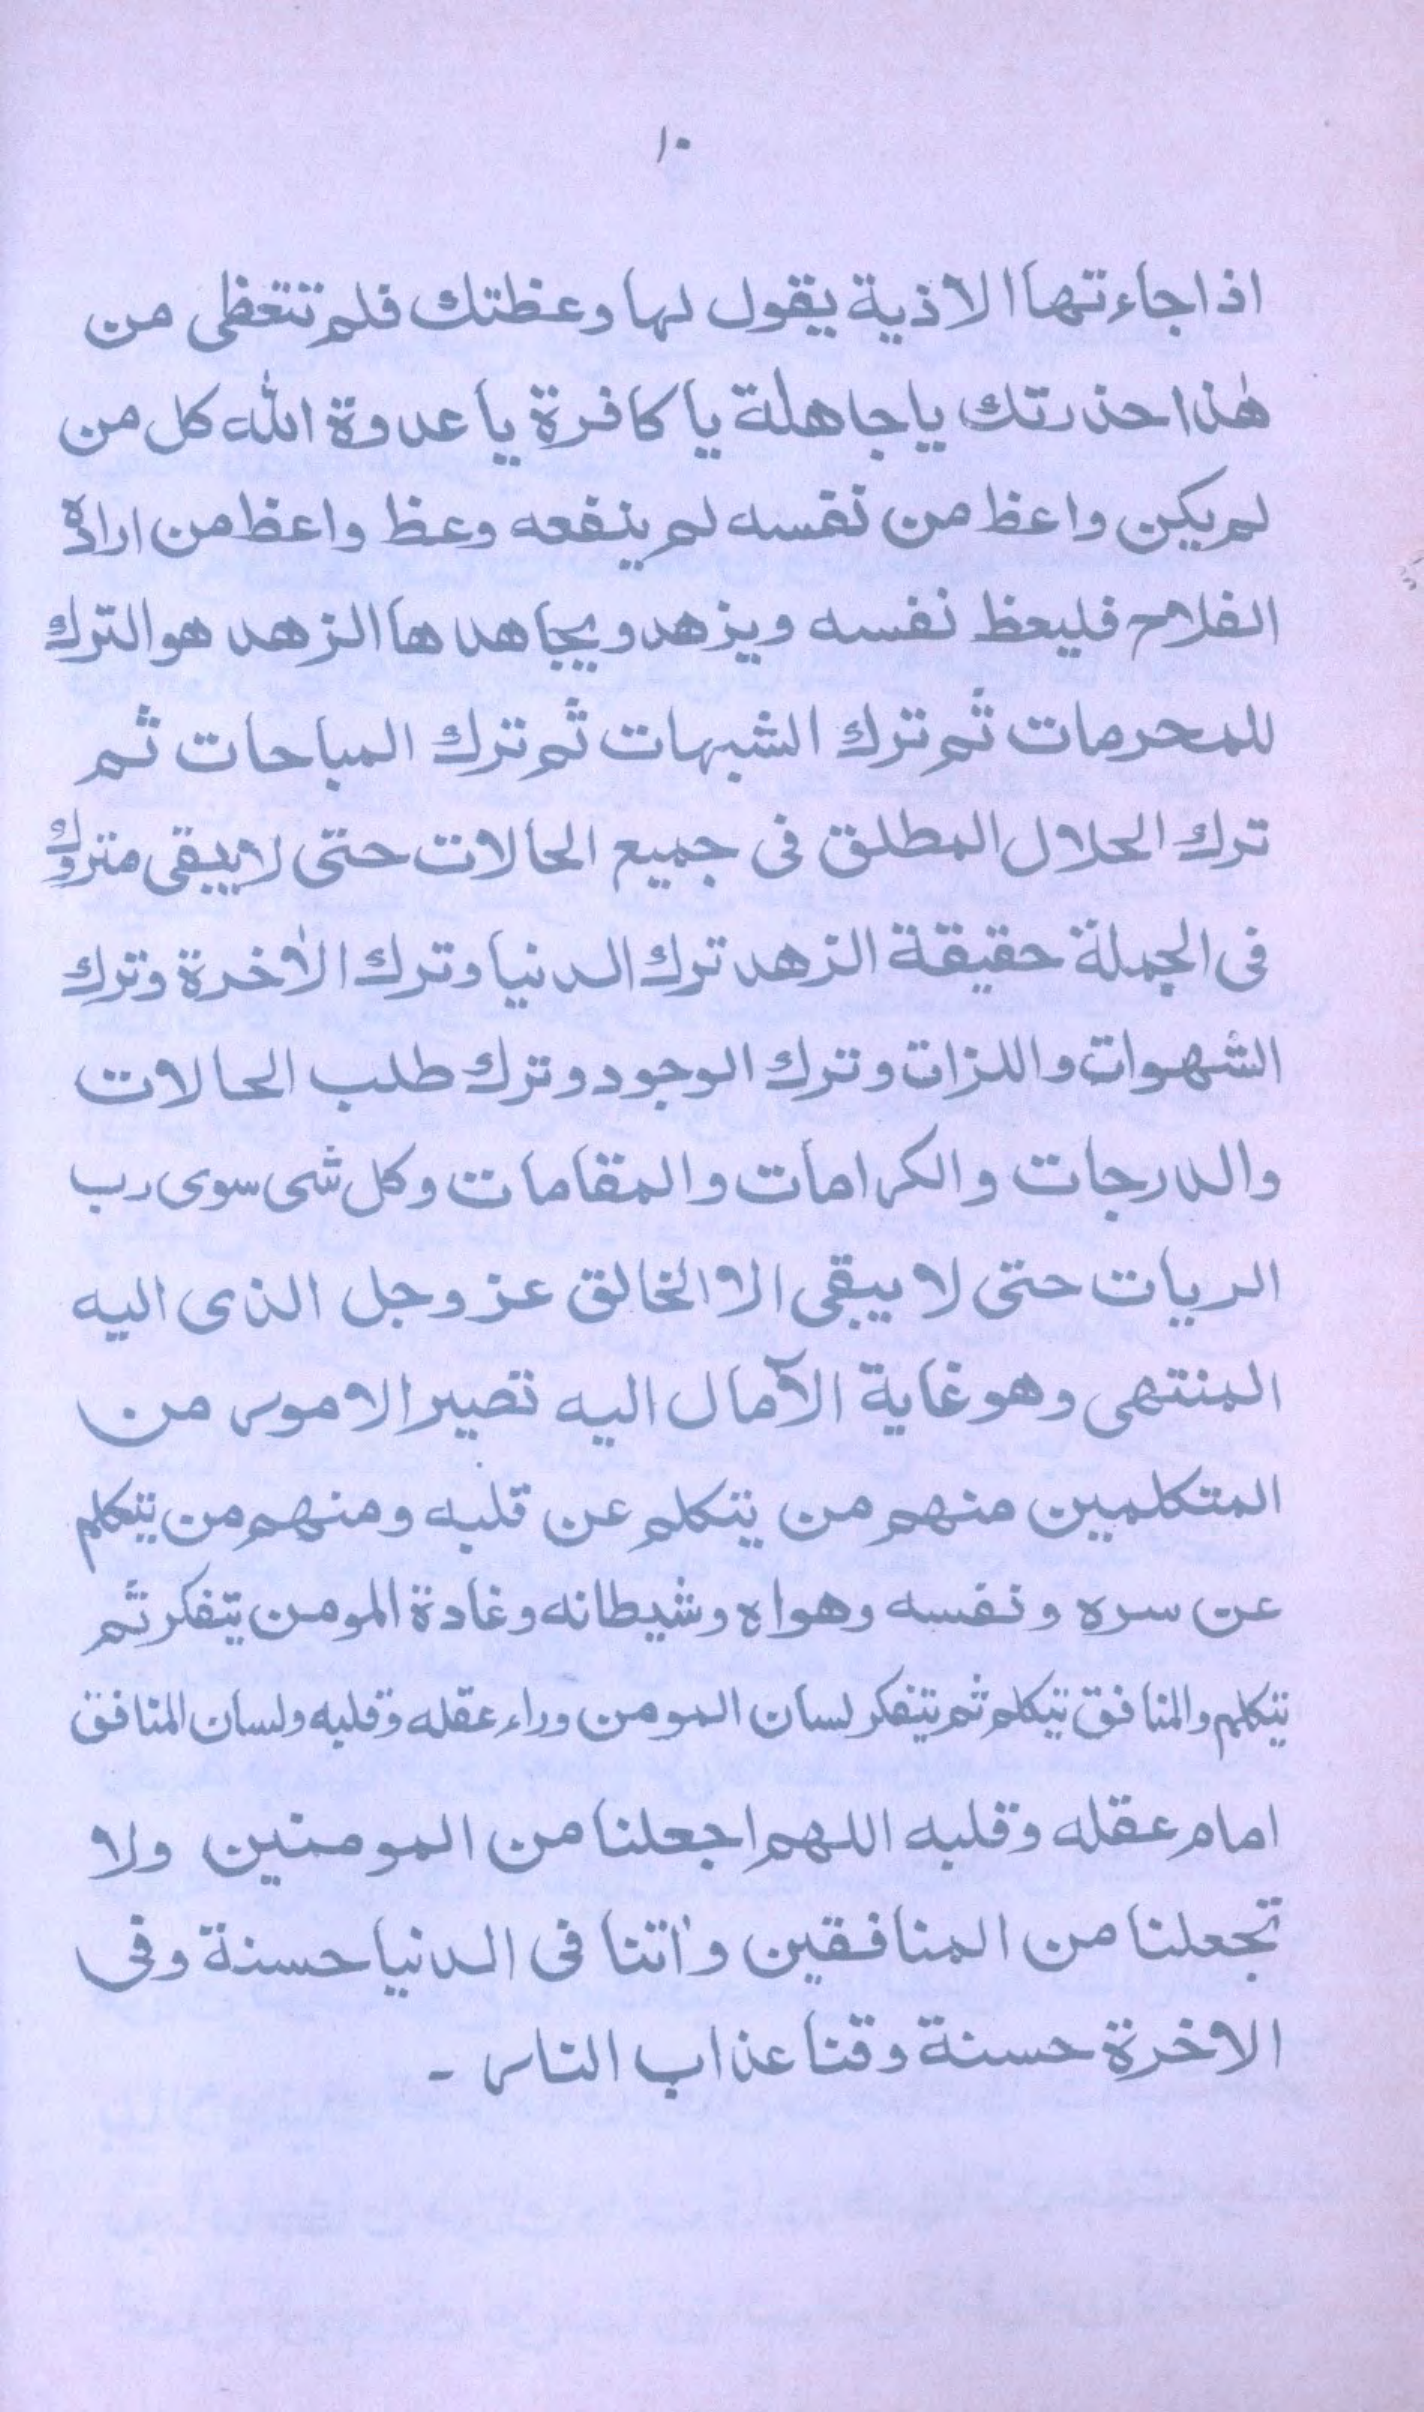 ١٠
اذا جاءتها الاذية يقول لها وعظتك فلم تتعظى من
هٰذا حذرتك يا جاهلة يا كافرة يا عدوة الله كل من
لم يكن واعظ من نفسه لم ينفعه وعظ واعظ من اراده
الفلاح فليعظ نفسه ويزهد ويجاهد ها الزهد هو الترك
للمحرمات ثم ترك الشبهات ثم ترك المباحات ثم
ترك الحلال المطلق فى جميع الحالات حتى لا يبقى متروك
فى الجملة حقيقة الزهد ترك الدنيا وترك الاٰخرة وترك
الشهوات واللزات وترك الوجود وترك طلب الحالات
والدرجات والكرامات والمقامات وكل شى سوى رب
الريات حتى لا يبقى الا الخالق عز وجل الذى اليه
المنتهى وهو غاية الآمال اليه تصير الامور من
المتكلمين منهم من يتكلم عن قلبه ومنهم من يتكلم
عن سره ونفسه وهواه وشيطانه وغادة المومن يتفكر ثم
يتكلم والمنافق يتكلم ثم يتفكر لسان المومن وراء عقله وقلبه ولسان المنافق
امام عقله وقلبه اللهم اجعلنا من المومنين ولا
تجعلنا من المنافقين واٰتنا فى الدنيا حسنة وفى
الاخرة حسنة وقنا عذاب النار -